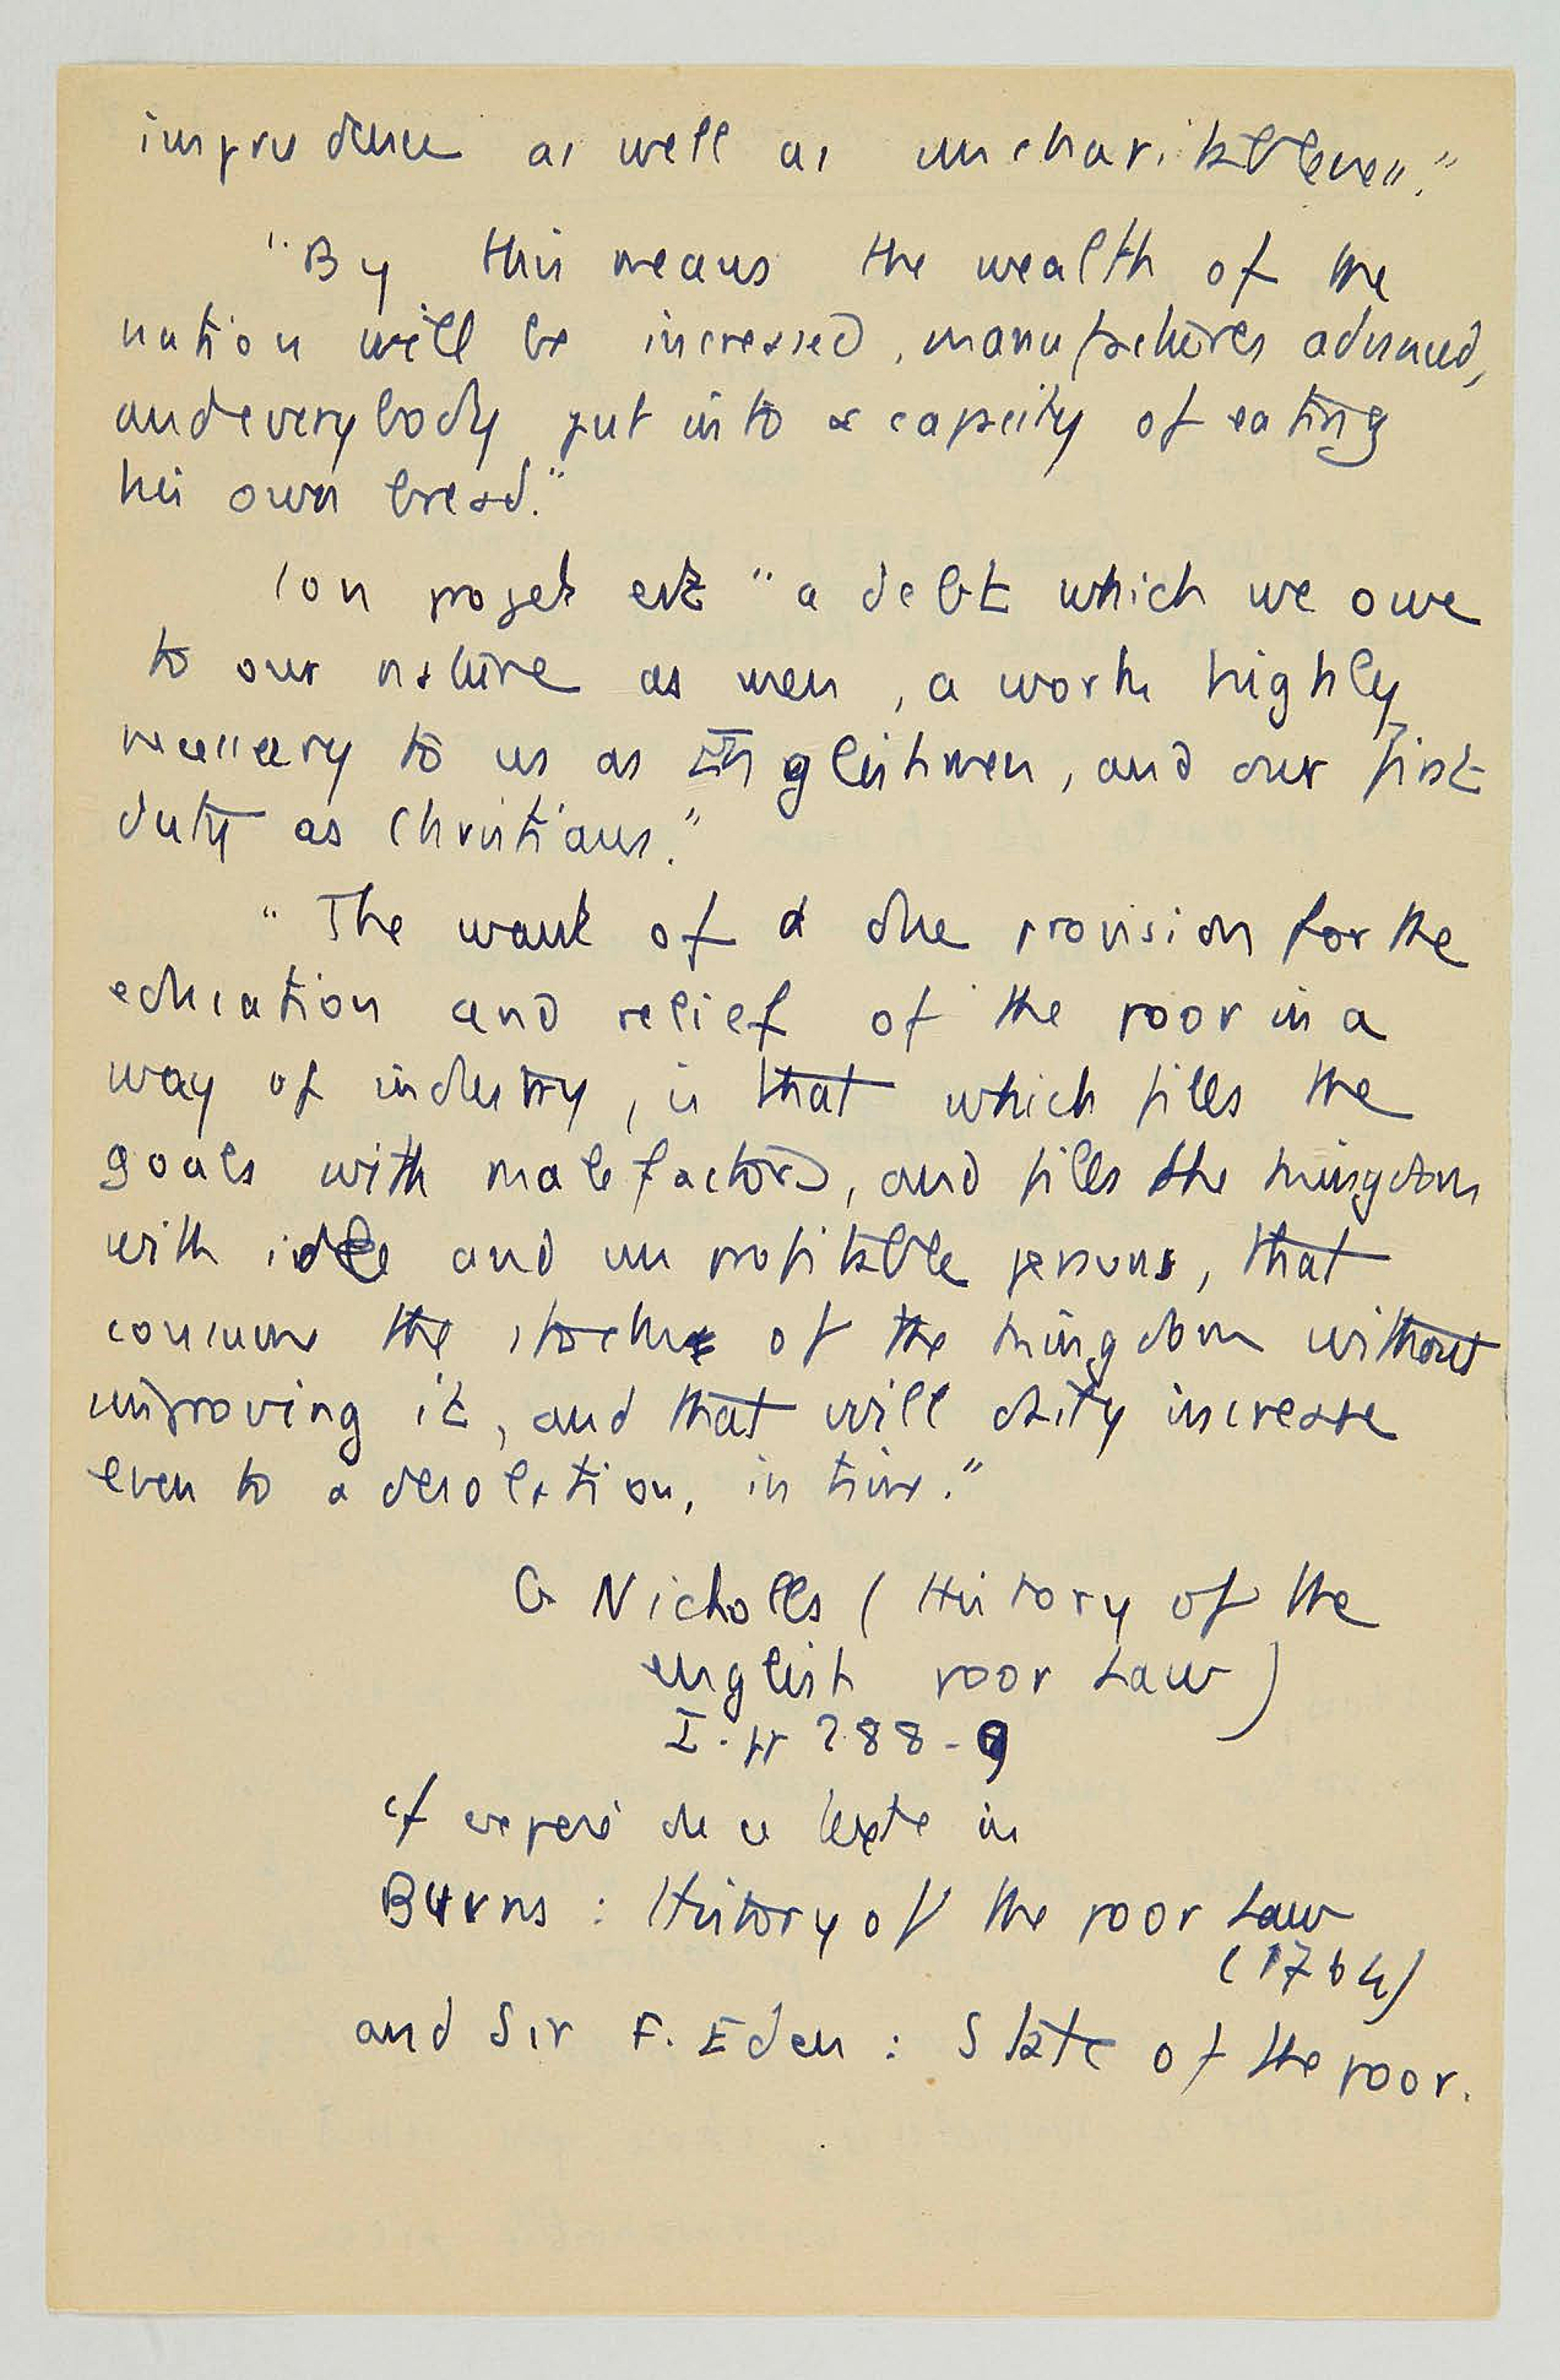 imprudence as well as uncharitableness."
"By this means the wealth of the
nation will be increased, manufactures advanced,
and everybody put into a capacity of eating
his own bread."
son projet est "a debt which we owe
to our nature as men, a work highly
necessary to us as Englishmen, and our first
duty as Christians."
"The want of a due provision for the
education and relief of the poor in a
way of industry, is that which fills the
goals with malefactors, and fills the kingdom
with idle and unprofitable persons, that
consume the stock of the kingdom without
improving it, and that will daily increase
even to a desolation, in time."
G Nicholls (History of the
english poor Law)
I. pp 288-9
cf exposé de ce texte in
Burns : History of the poor Law
(1764)
and Sir F. Eden : State of the poor.